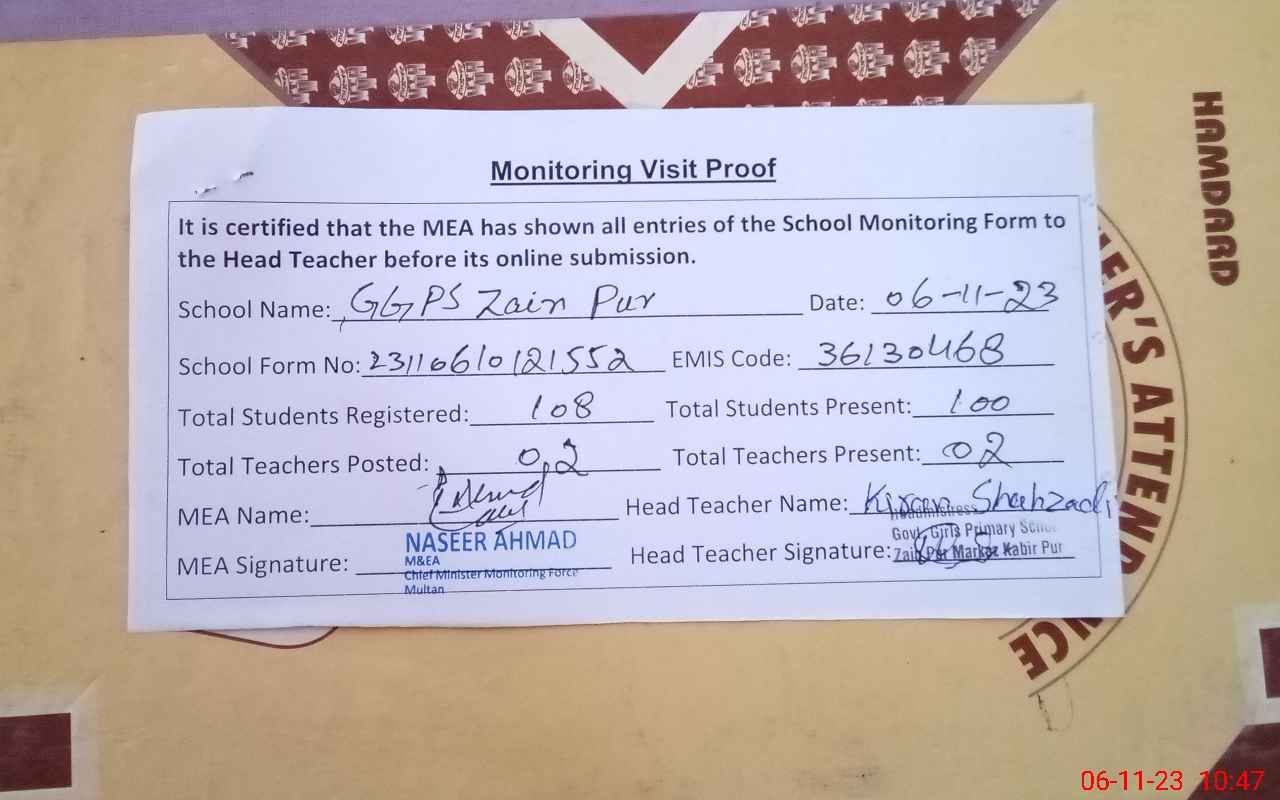 HAMDARD
Monitoring Visit Proof
It is certified that the MEA has shown all entries of the School Monitoring Form to
the Head Teacher before its online submission.
School Name: GGPS Zain Pur Date: 06-11-23
School Form No: 23110610121552 EMIS Code: 36130468
Total Students Registered: 108 Total Students Present: 100
Total Teachers Posted: 02 Total Teachers Present: 02
MEA Name: Head Teacher Name: Kiran Shahzadi
Headmistress
Govt. Girls Primary School
MEA Signature: NASEER AHMAD Head Teacher Signature: Zain Pur Markaz Kabir Pur
M&EA
Chief Minister Monitoring Force
Multan
ER'S ATTEND NCE
06-11-23 10:47